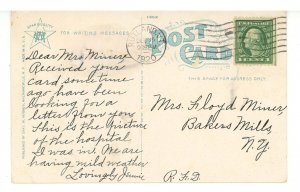 STAR QUALITY
FOR WRITING MESSAGES
POST CARD
THIS SPACE FOR ADDRESS ONLY
1920
Dear Mrs. Miner
Received your
card sometime
ago have been
looking for a
letter from you
This is the picture
of the hospital
I was in. We are
having mild weather
Lovingly Jennie
Mrs. Floyd Miner
Bakers Mills,
N.Y.
R.F.D